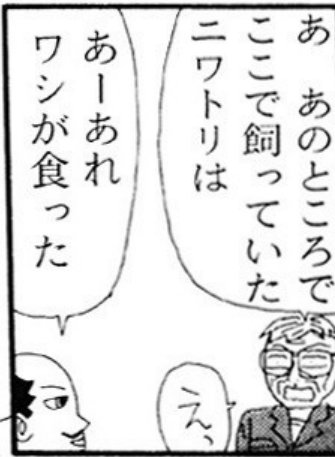 あ あのところで
ここで飼っていた
ニワトリは
あーあれ
ワシが食った
えっ